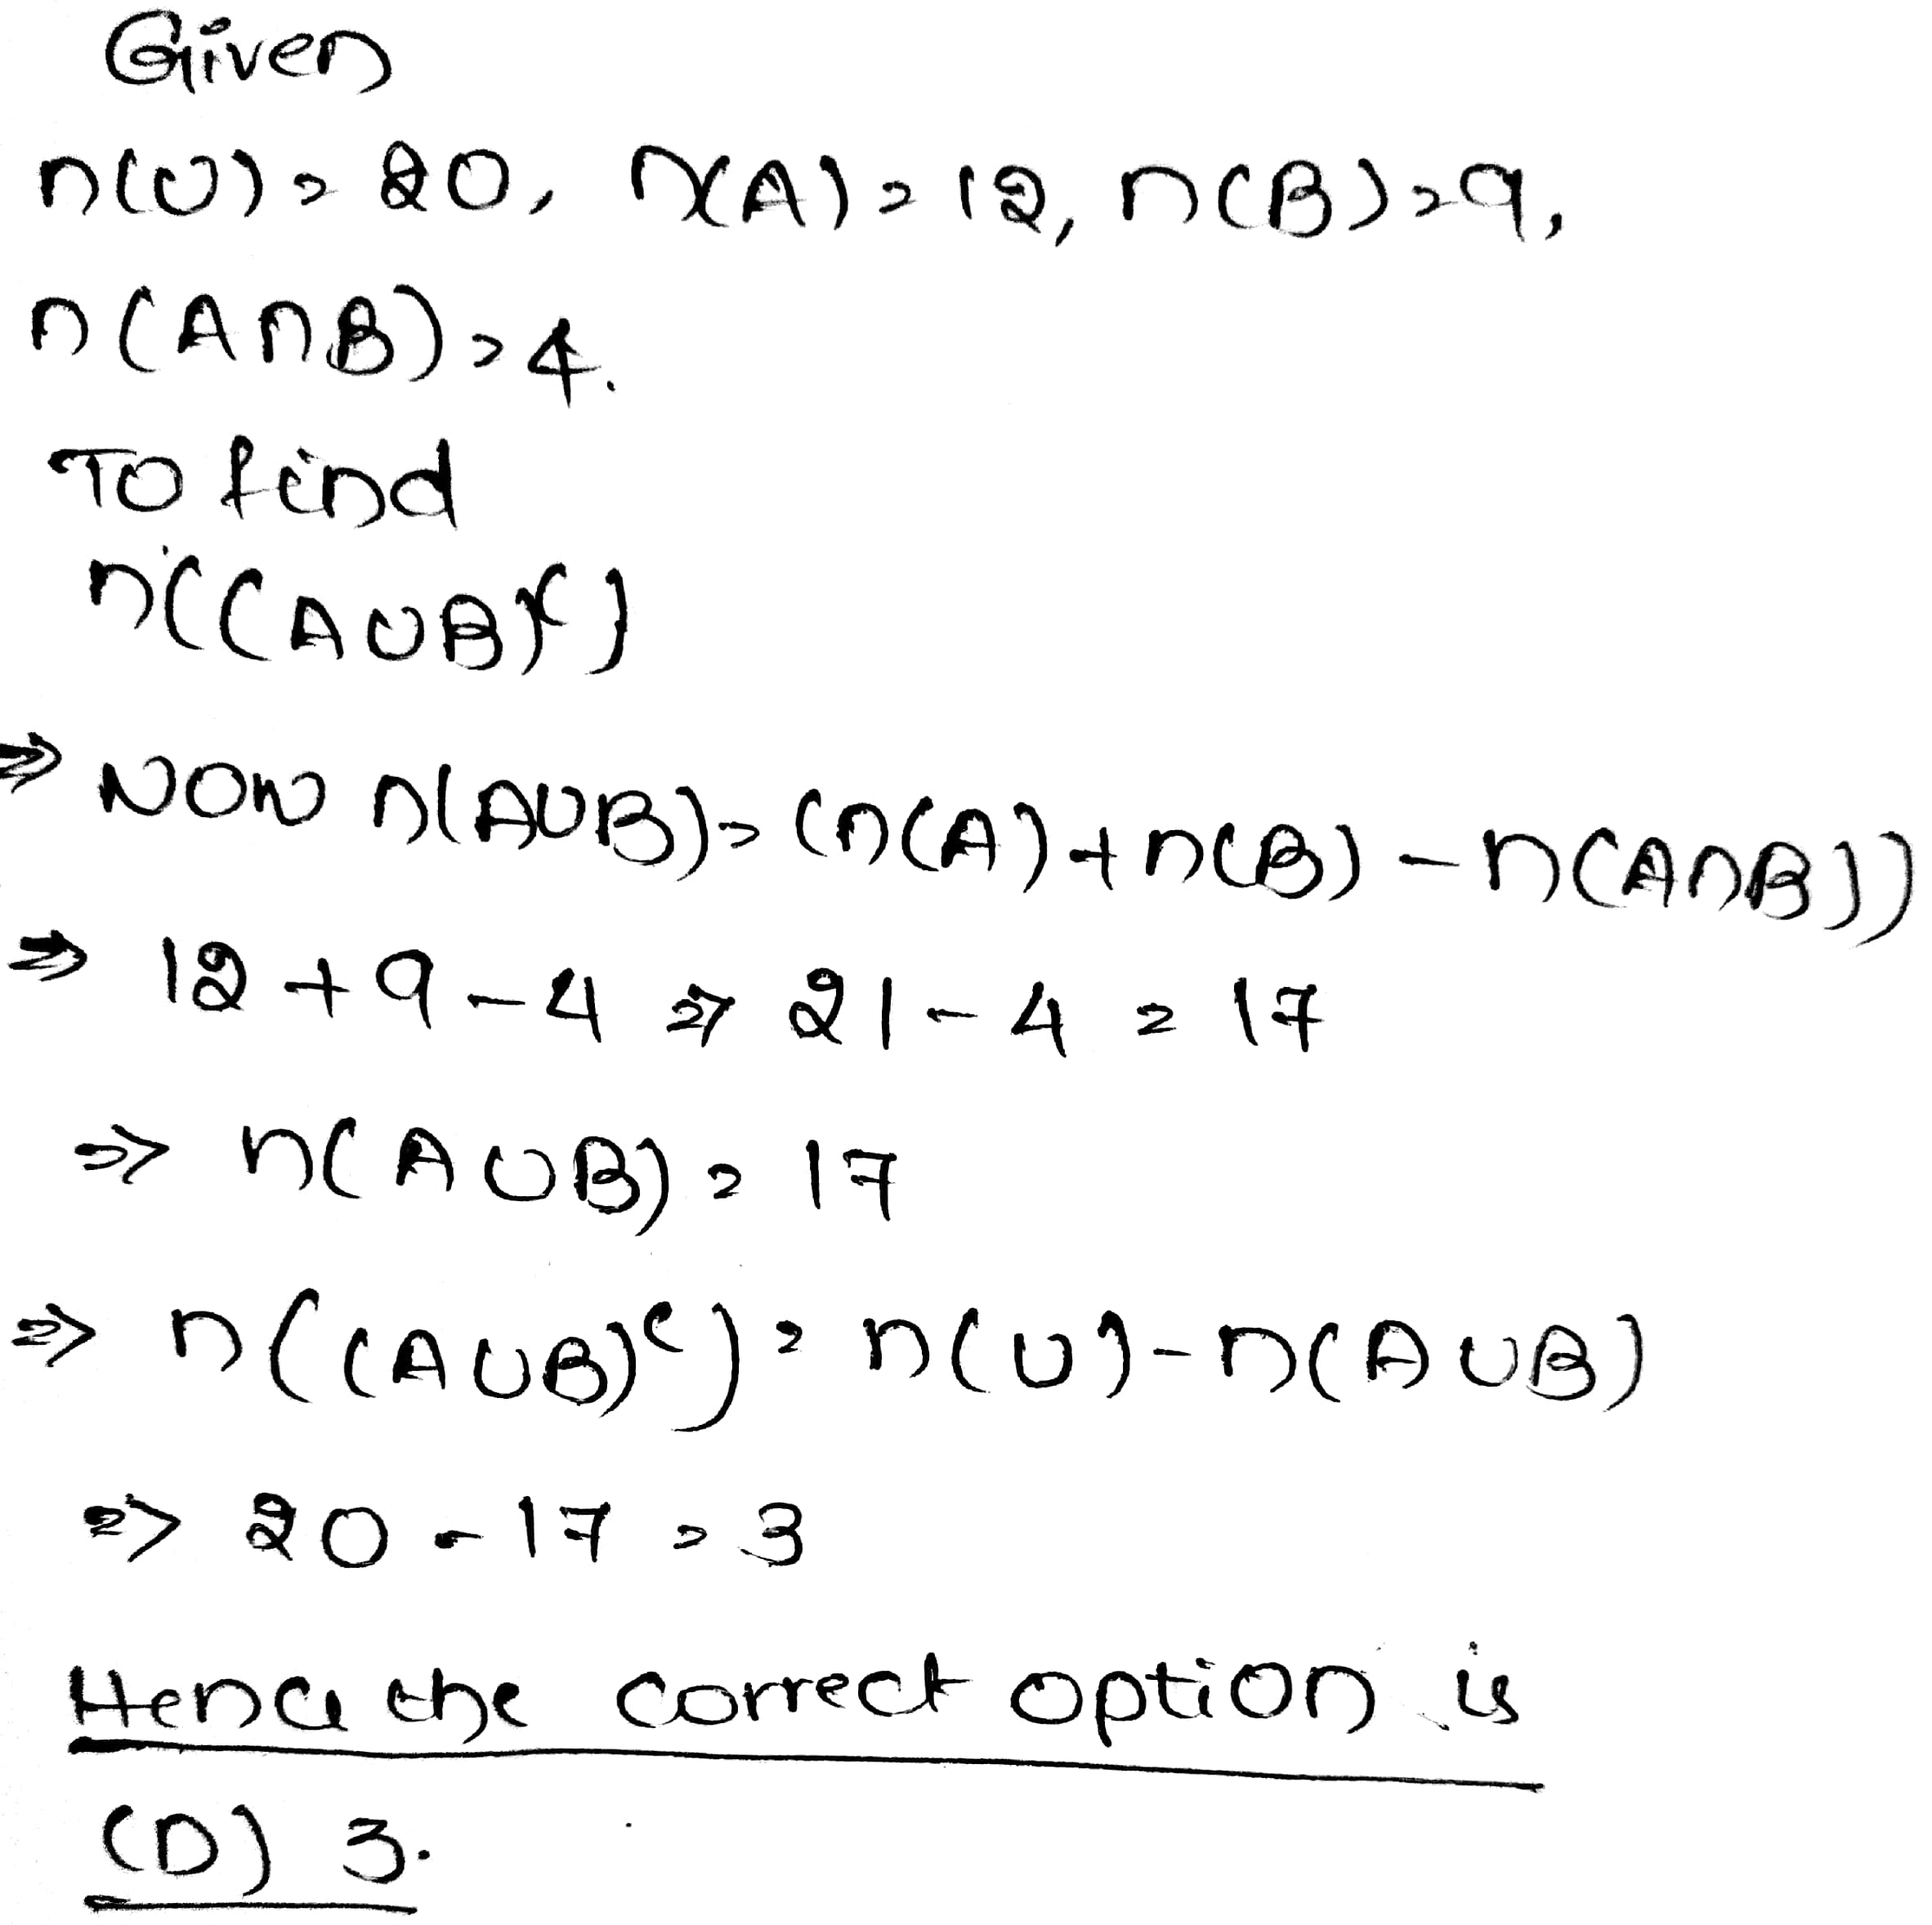 Given
n(U) = 20, n(A) = 12, n(B) = 9,
n(A∩B) = 4.
To find
n((A∪B)ᶜ)
⇒ Now n(A∪B) = (n(A) + n(B) - n(A∩B))
⇒ 12 + 9 - 4 ⇒ 21 - 4 = 17
⇒ n(A∪B) = 17
⇒ n((A∪B)ᶜ) = n(U) - n(A∪B)
⇒ 20 - 17 = 3
Hence the correct option is
(D) 3.